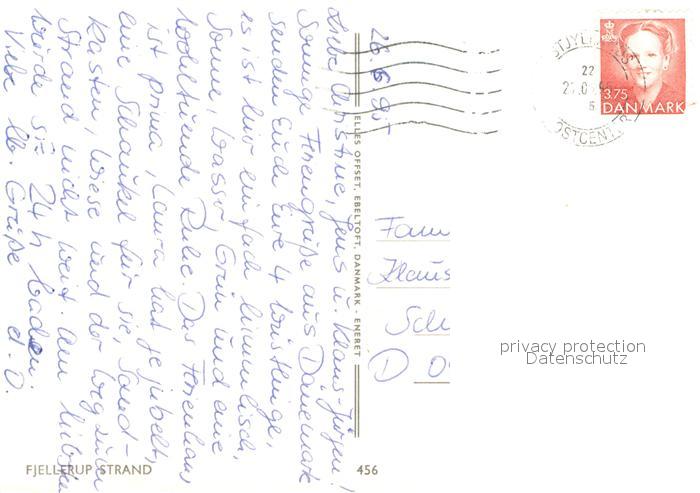 26.6.95
Liebe Christine, Jens u. Klaus-Jürgen!
Sonnige Feriengrüße aus Dänemark
senden Euch Eure 4
es ist hier einfach himmlisch,
Sonne, Wasser, Grün und eine
wohltuende Ruhe. Das Ferienhaus
ist prima, Laura hat gejubelt,
eine Schaukel für sie, Sand-
kasten, Wiese und der Weg zum
Strand nicht weit. Am liebsten
würde sie 24 h baden.
Viele lb. Grüße
ELLES OFFSET, EBELTOFT, DANMARK - ENERET
FJELLERUP STRAND
456
Fam
Klaus
Sch
D 0
3.75
DANMARK
22
POSTCENTER
privacy protection
Datenschutz